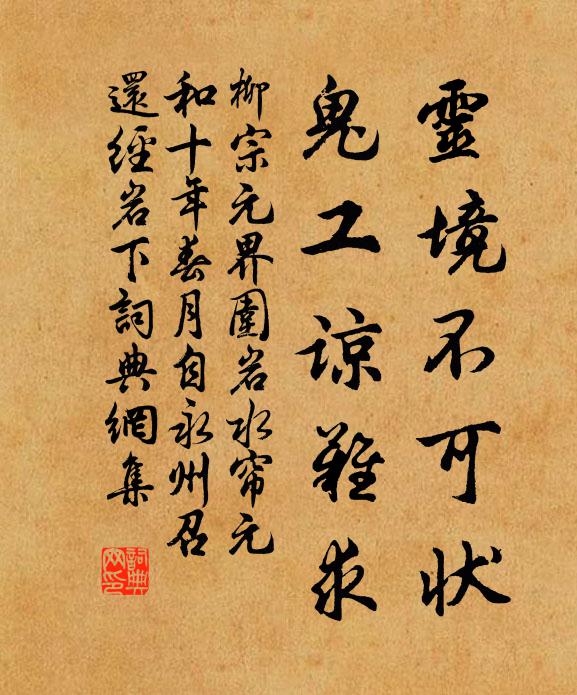 靈境不可狀
鬼工諒難求
柳宗元界圍岩水帘元
和十年春月自永州召
還經岩下詞典網集
詞典网印